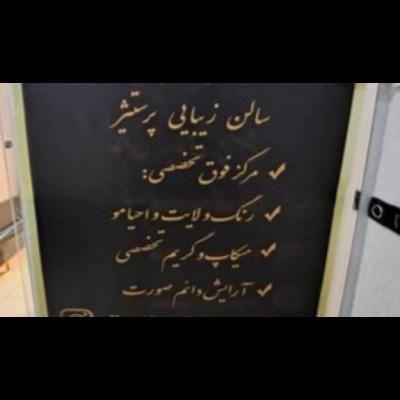 سالن زیبایی پرستیژ
✓ مرکز فوق تخصصی:
✓ رنگ و لایت و احیا مو
✓ میکاپ و گریم تخصصی
✓ آرایش دائم صورت